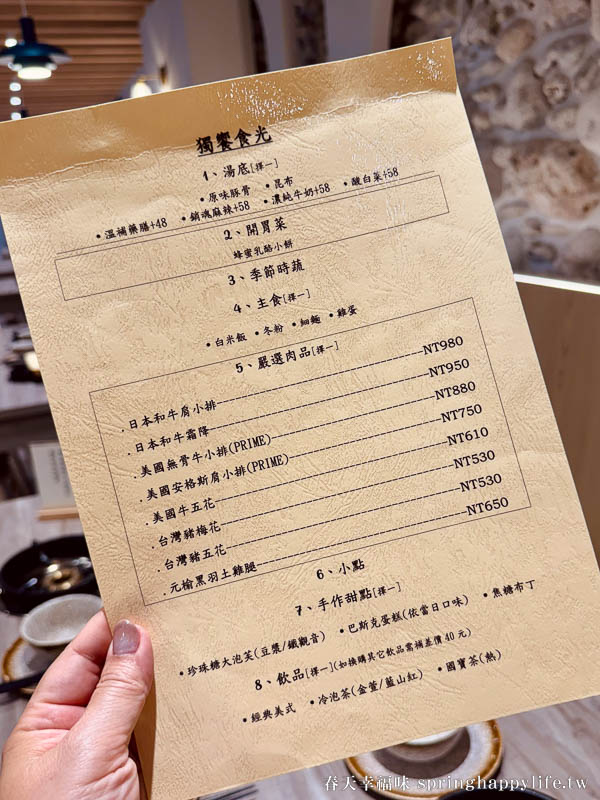 獨饗食光
1、湯底[擇一]
•原味豚骨 •昆布
•溫補藥膳+48 •銷魂麻辣+58 •濃純牛奶+58 •酸白菜+58
2、開胃菜
蜂蜜乳酪小餅
3、季節時蔬
4、主食[擇一]
•白米飯 •冬粉 •細麵 •雞蛋
5、嚴選肉品[擇一]
.日本和牛肩小排---NT980
.日本和牛霜降---NT950
.美國無骨牛小排(PRIME)---NT880
.美國安格斯肩小排(PRIME)---NT750
.美國牛五花---NT610
.台灣豬梅花---NT530
.台灣豬五花---NT530
.元榆黑羽土雞腿---NT650
6、小點
7、手作甜點[擇一]
•珍珠糖大泡芙(豆漿/鐵觀音) •巴斯克蛋糕(依當日口味) •焦糖布丁
8、飲品[擇一](如換購其它飲品需補差價40元)
•經典美式 •冷泡茶(金萱/藍山紅) •國寶茶(熱)
春天幸福味 springhappylife.tw